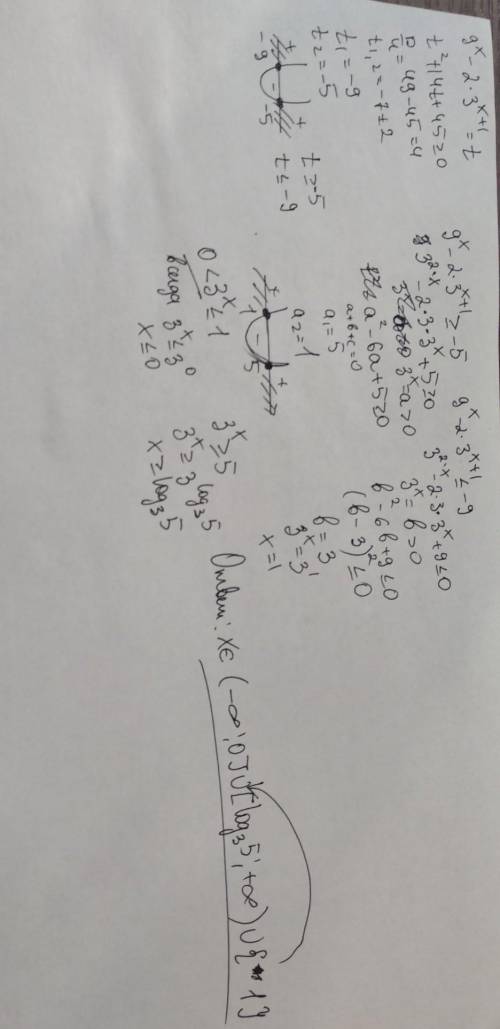 9^x - 2·3^(x+1) = t
t² + 14t + 45 ≥ 0
D/4 = 49 - 45 = 4
t₁,₂ = -7 ± 2
t₁ = -9
t₂ = -5
+ - +
-9 -5
t ≥ -5
t ≤ -9
9^x - 2·3^(x+1) ≥ -5
3^(2·x) - 2·3·3^x + 5 ≥ 0
3^x = a > 0
a² - 6a + 5 ≥ 0
a + b + c = 0
a₁ = 5
a₂ = 1
+ - +
1 5
0 < 3^x ≤ 1
всегда 3^x ≤ 3^0
x ≤ 0
3^x ≥ 5
3^x ≥ 3^(log₃5)
x ≥ log₃5
9^x - 2·3^(x+1) ≤ -9
3^(2·x) - 2·3·3^x + 9 ≤ 0
3^x = b > 0
b² - 6b + 9 ≤ 0
(b - 3)² ≤ 0
b = 3
3^x = 3^1
x = 1
Ответ: x ∈ (-∞; 0] ∪ [log₃5; +∞) ∪ {1}